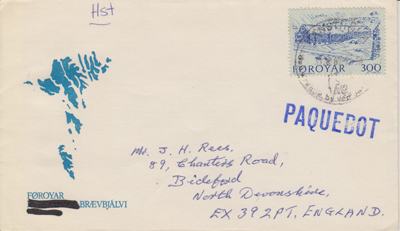 Hst
FØROYAR 300
PAQUEBOT
Mr. J. H. Rees,
89, Chanters Road,
Bideford
North Devonshire,
EX 392PT, ENGLAND.
FØROYAR
BRÆVBJÁLVI